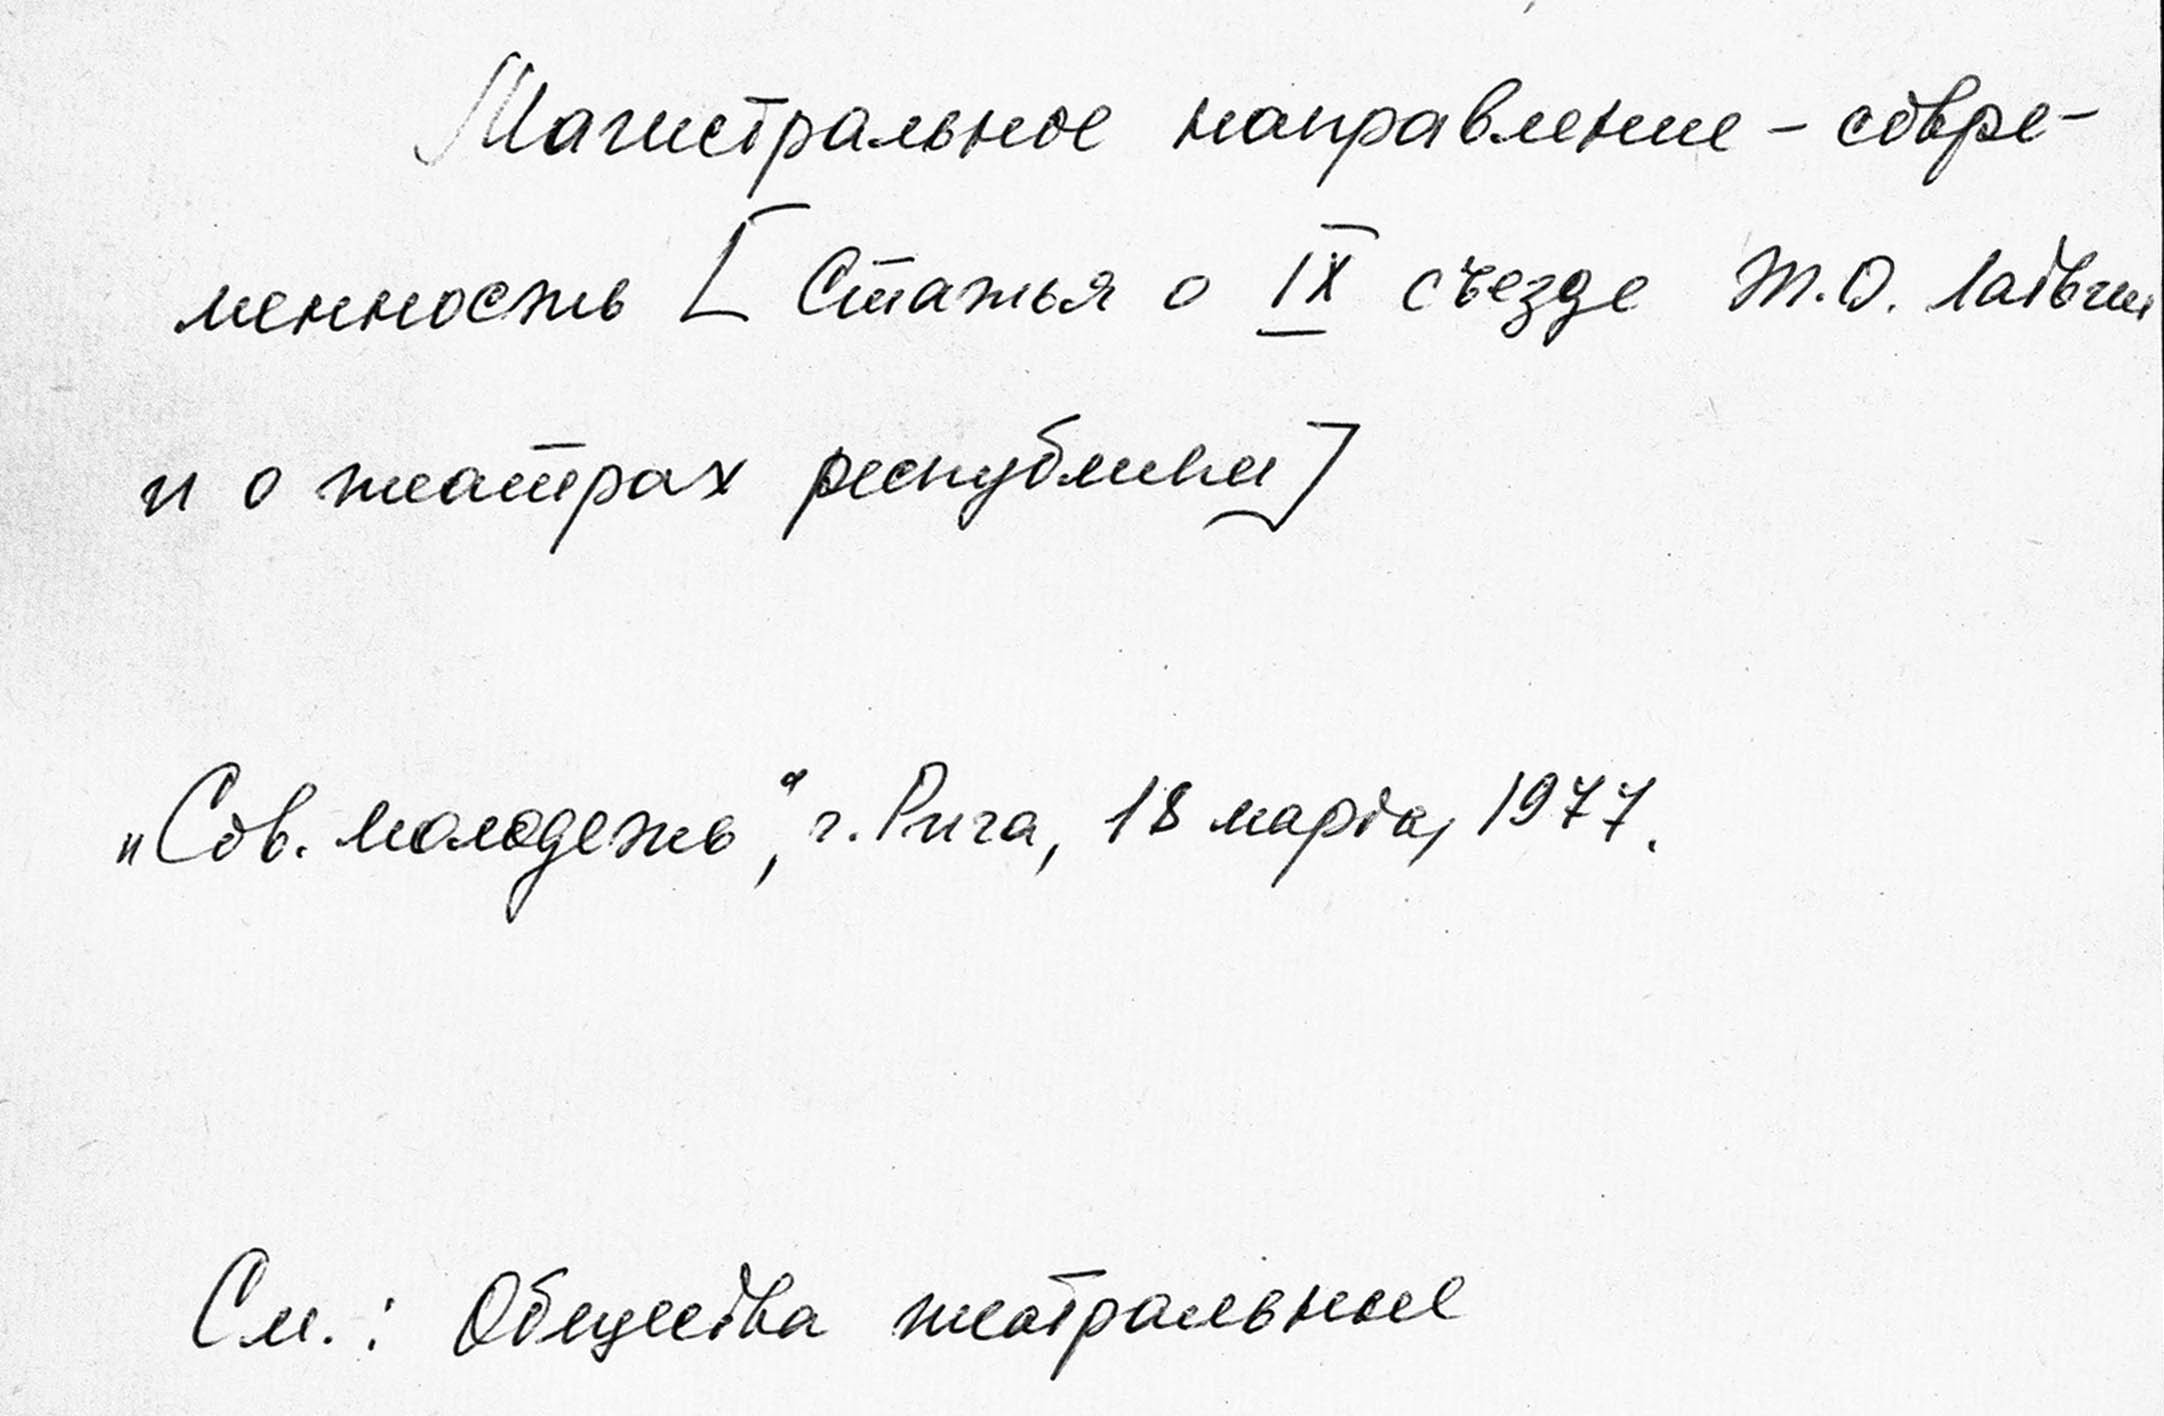 Магистральное направление - совре-
менность [Статья о IX съезде Т.О. Латвии
и о театрах республики]
„Сов. молодежь“, г. Рига, 18 марта, 1977.
См.: Общества театральные